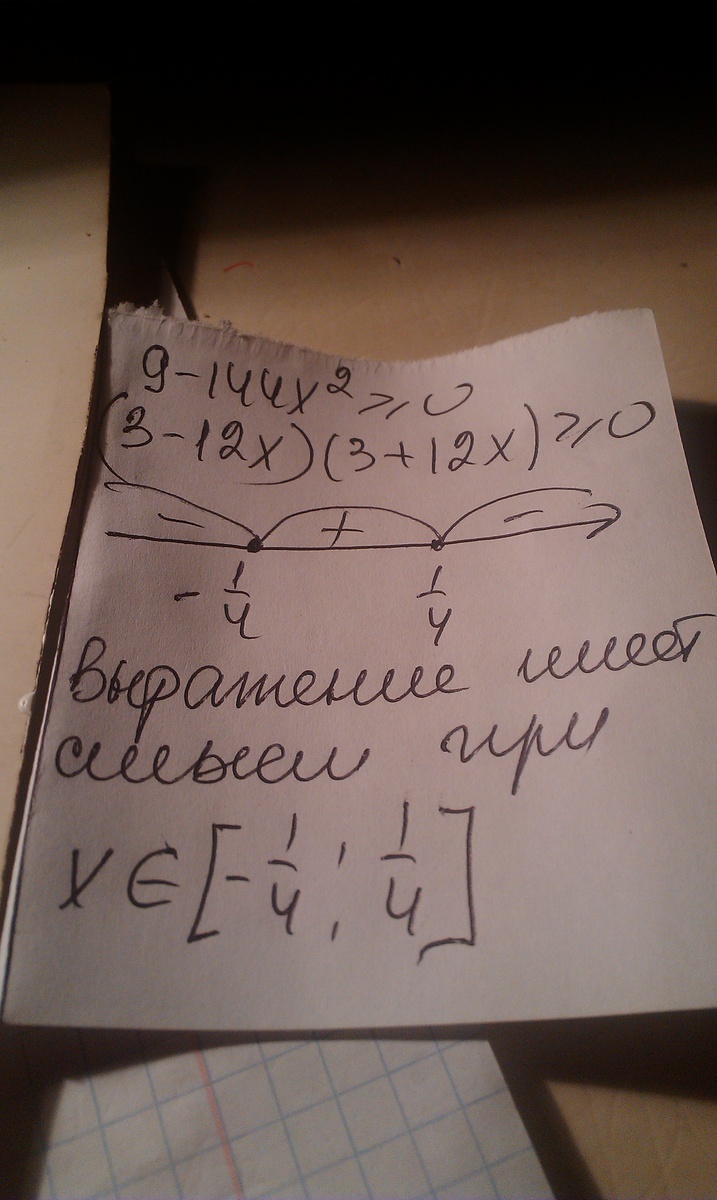 9-144x² ≥ 0
(3-12x)(3+12x) ≥ 0
- + -
-1/4 1/4
Выражение имеет
смысл при
x ∈ [-1/4; 1/4]